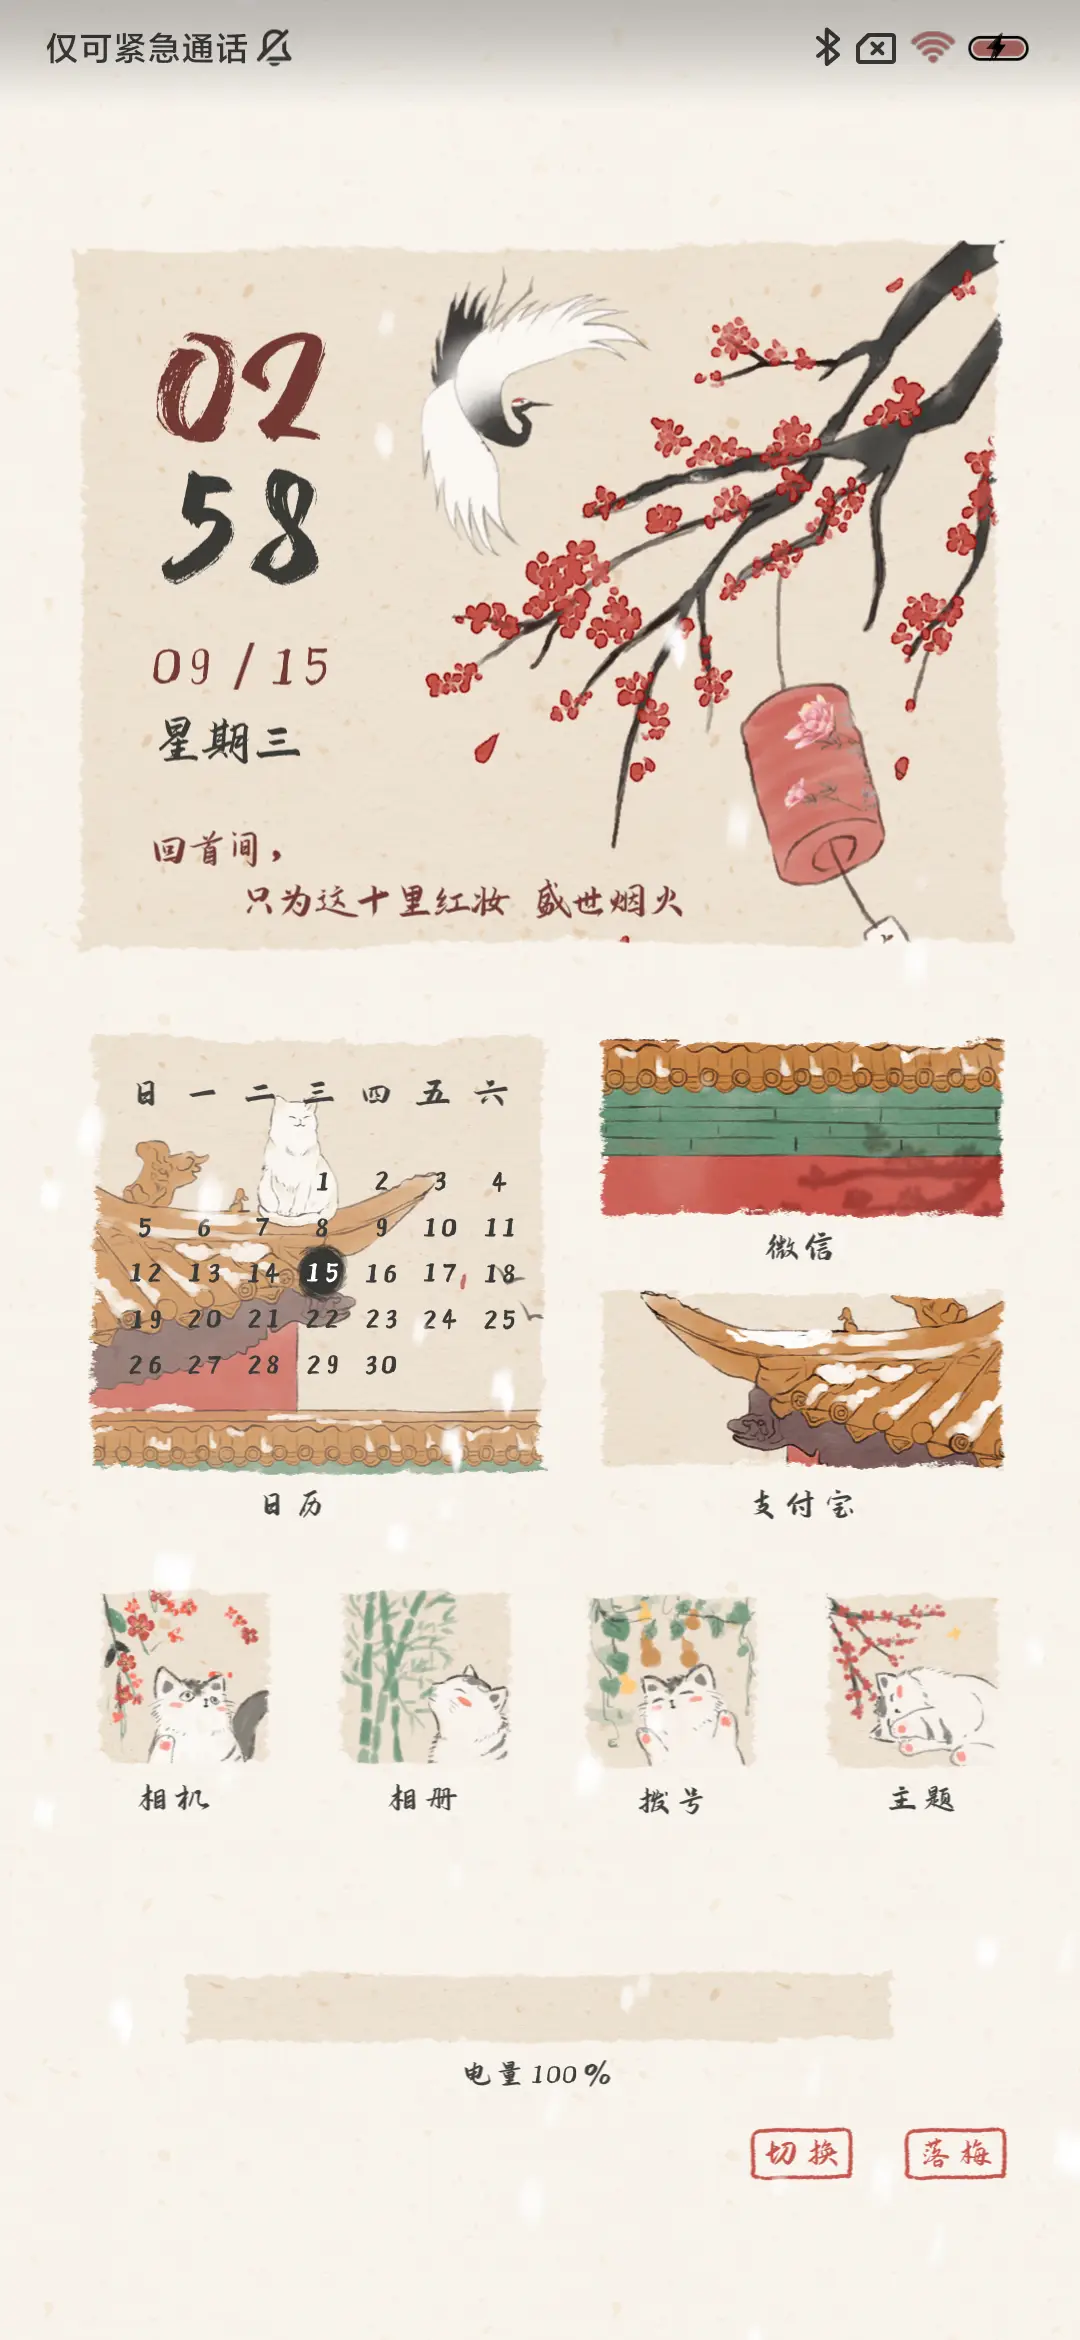 仅可紧急通话
02
58
09/15
星期三
回首间，
只为这十里红妆 盛世烟火
日 一 二 三 四 五 六
1 2 3 4
5 6 7 8 9 10 11
12 13 14 15 16 17 18
19 20 21 22 23 24 25
26 27 28 29 30
日历
微信
支付宝
相机 相册 拨号 主题
电量100%
切换 落梅